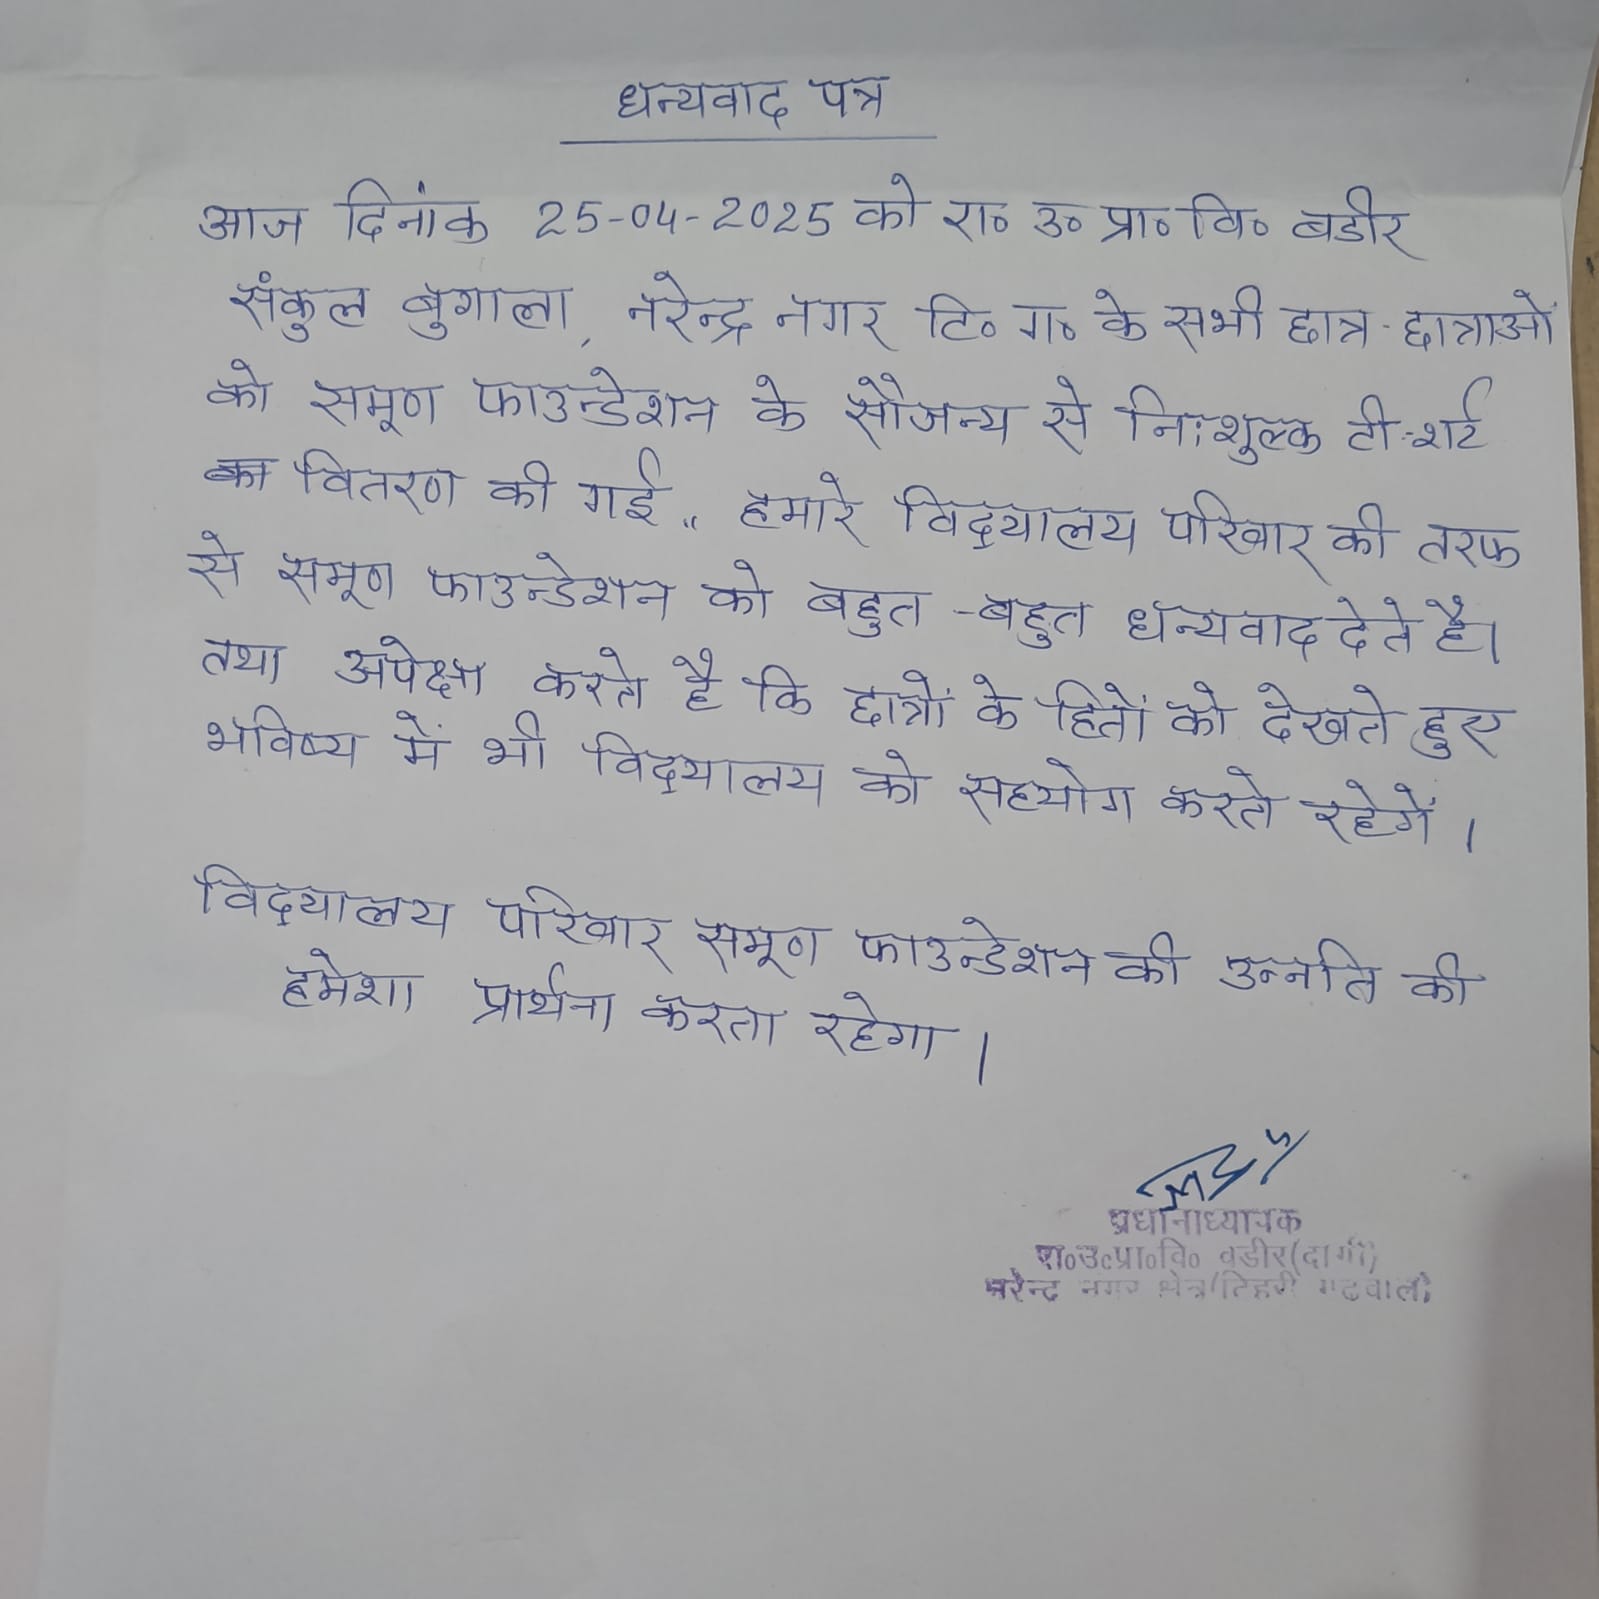 धन्यवाद पत्र
आज दिनांक 25-04-2025 को रा० उ० प्रा० वि० बडीर
संकुल बुगाला, नरेन्द्र नगर टि० ग० के सभी छात्र-छात्राओं
को समूण फाउन्डेशन के सौजन्य से निःशुल्क टी-शर्ट
का वितरण की गई,, हमारे विद्यालय परिवार की तरफ
से समूण फाउन्डेशन को बहुत-बहुत धन्यवाद देते है।
तथा अपेक्षा करते है कि छात्रों के हितों को देखते हुए
भविष्य में भी विद्यालय को सहयोग करते रहेगें ।
विद्यालय परिवार समूण फाउन्डेशन की उन्नति की
हमेशा प्रार्थना करता रहेगा ।
प्रधानाध्यापक
रा०उ०प्रा०वि० बडीर(दोगी)
नरेन्द्र नगर क्षेत्र(टिहरी गढवाल)